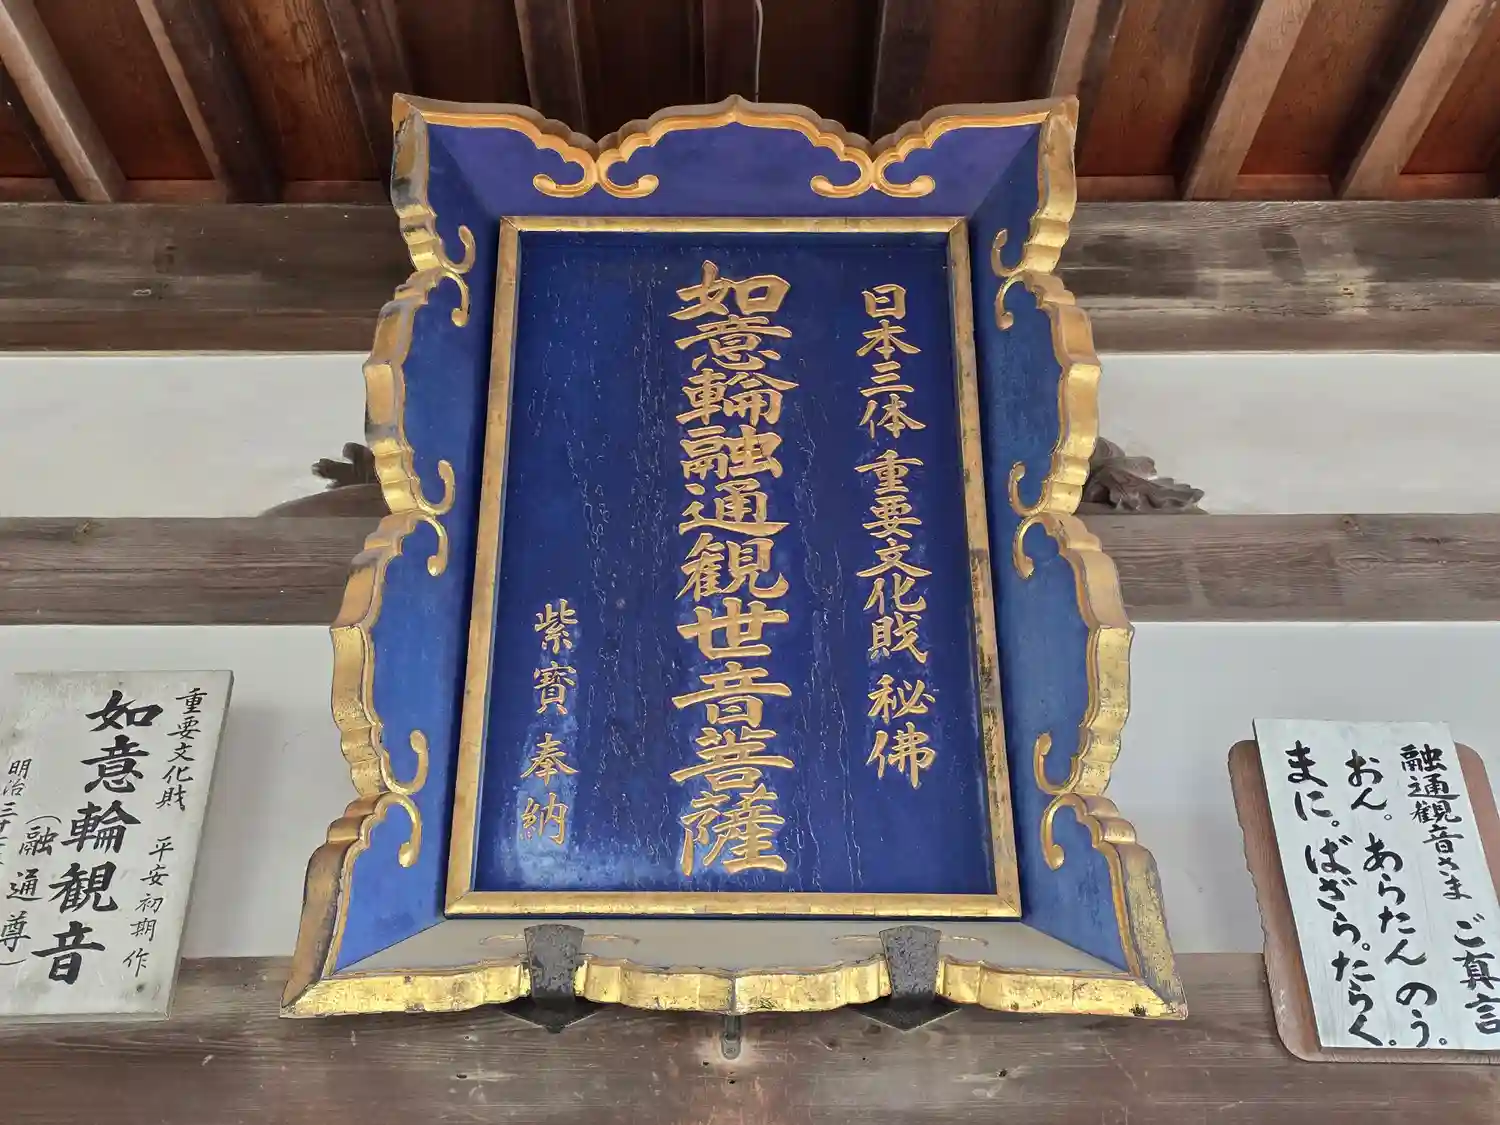 日本三体 重要文化財 秘佛
如意輪融通観世音菩薩
紫寳奉納
重要文化財 平安初期作
如意輪観音
(融通尊)
明治三十
融通観音さま ご真言
おん。あらたんのう。
まに。ばざら。たらく。